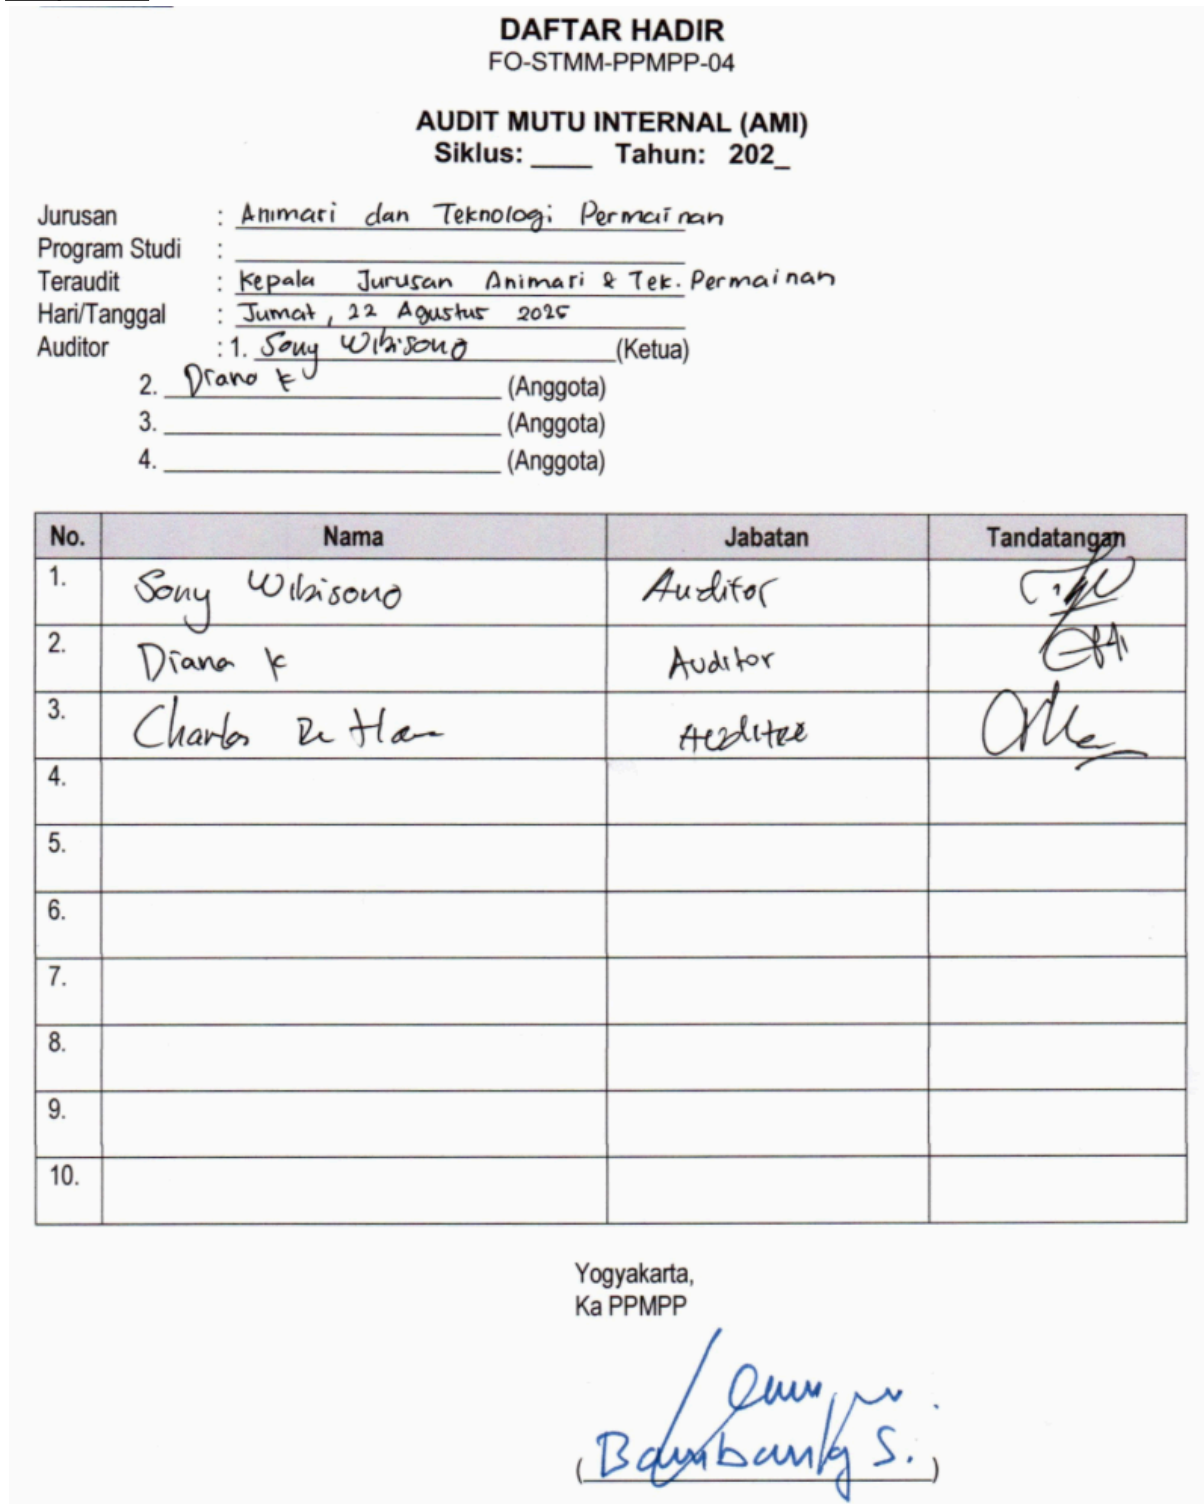 DAFTAR HADIR
FO-STMM-PPMPP-04
AUDIT MUTU INTERNAL (AMI)
Siklus: ____ Tahun: 202_
Jurusan : Animasi dan Teknologi Permainan
Program Studi :
Teraudit : Kepala Jurusan Animasi & Tek. Permainan
Hari/Tanggal : Jumat, 22 Agustus 2025
Auditor : 1. Sony Wibisono (Ketua)
2. Diana K (Anggota)
3. ____ (Anggota)
4. ____ (Anggota)
No. Nama Jabatan Tandatangan
1. Sony Wibisono Auditor
2. Diana K Auditor
3. Charles Auditee
4.
5.
6.
7.
8.
9.
10.
Yogyakarta,
Ka PPMPP
(Bambang S.)